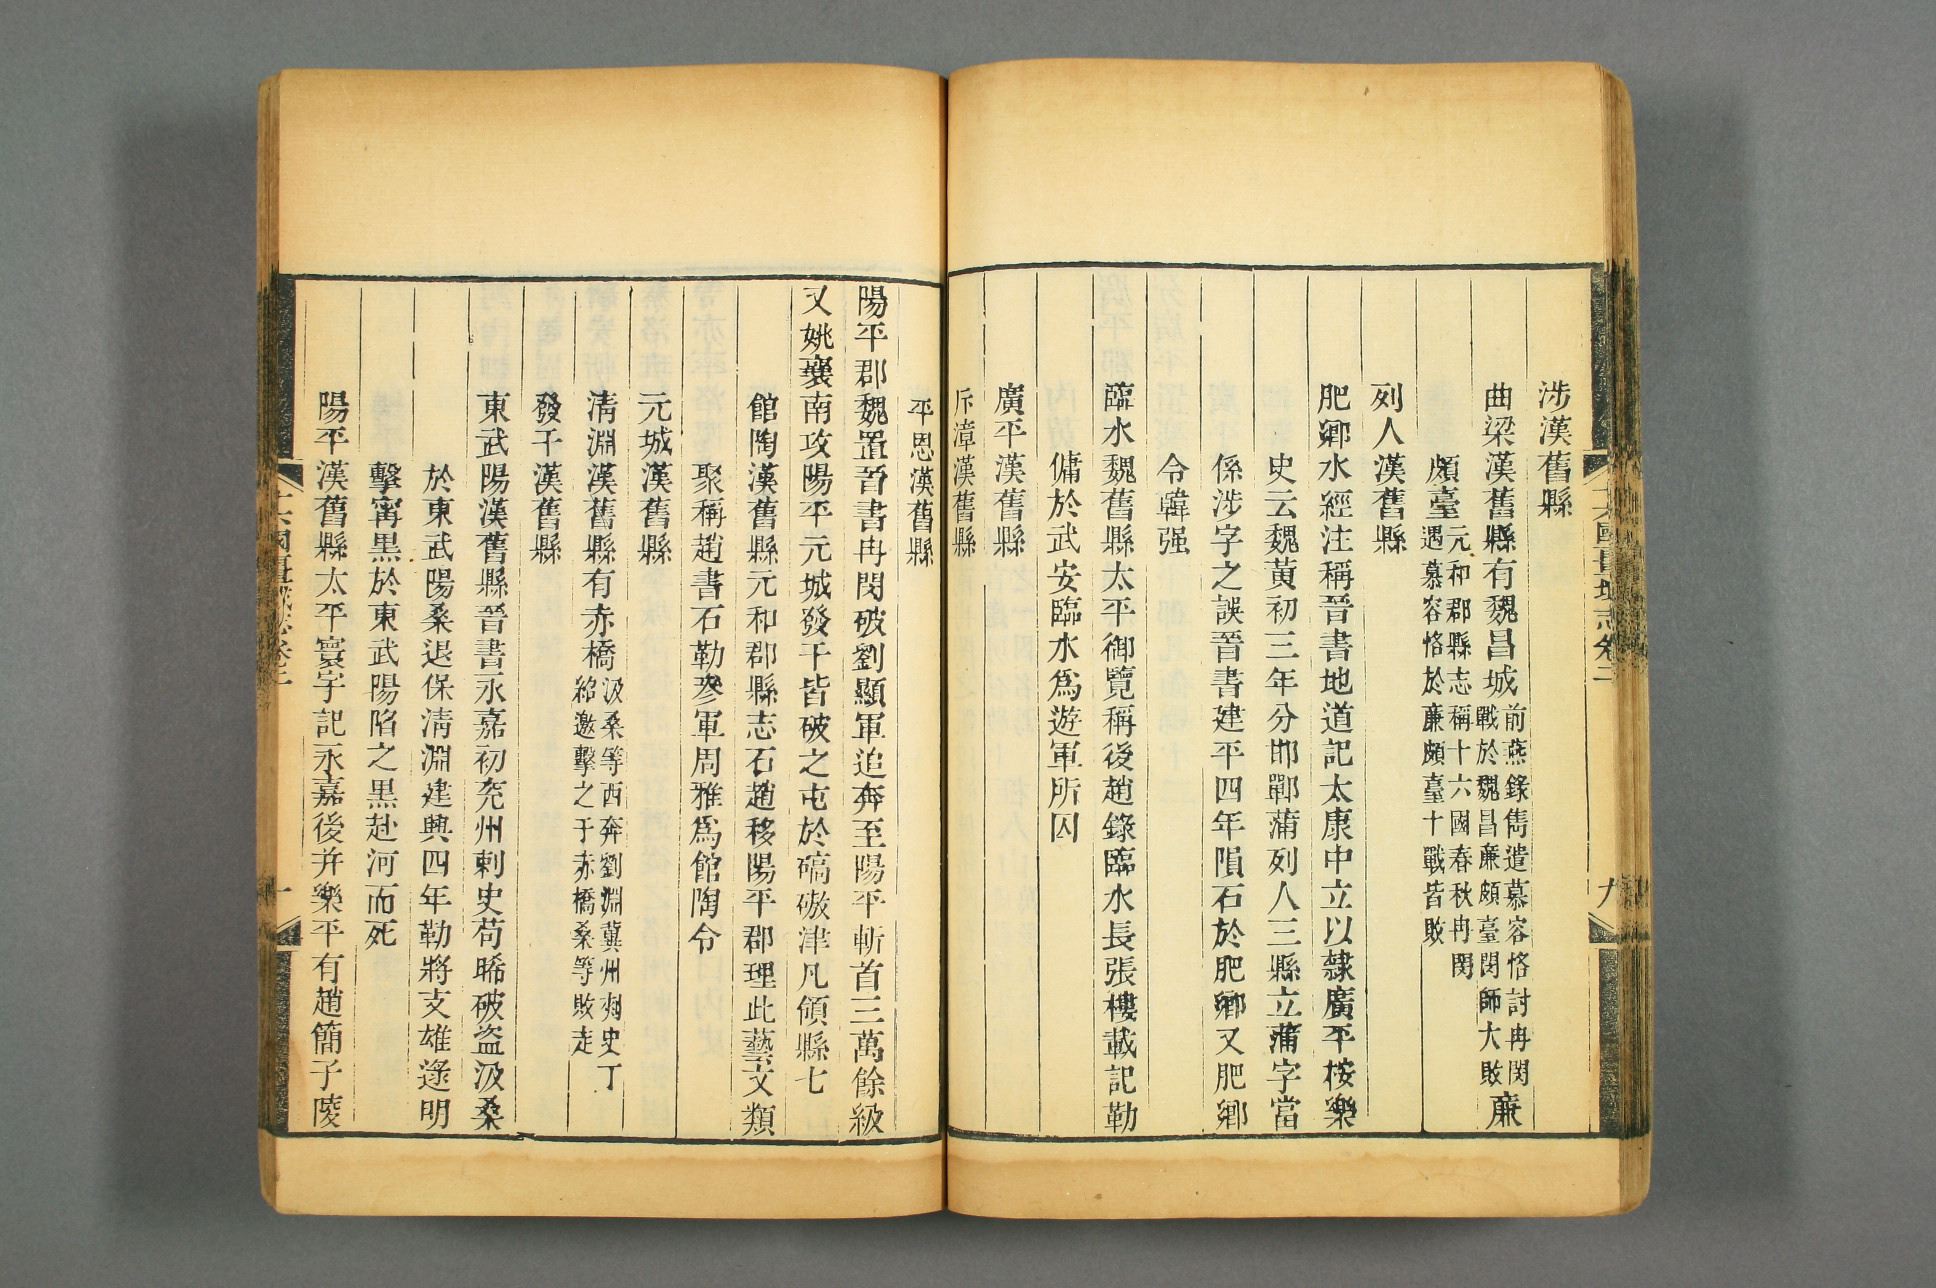 涉漢舊縣
曲梁漢舊縣有魏昌城前燕錄儁遣慕容恪討冉閔戰於魏昌廉頗臺閔師大敗廉
頗臺元和郡縣志稱十六國春秋冉閔遇慕容恪於廉頗臺十戰皆敗
列人漢舊縣
肥鄉水經注稱晉書地道記太康中立以隸廣平桉樂
史云魏黃初三年分邯鄲蒲列人三縣立蒲字當
係涉字之誤晉書建平四年隕石於肥鄉又肥鄉
令韓强
臨水魏舊縣太平御覽稱後趙錄臨水長張樓載記勒
傭於武安臨水爲遊軍所囚
廣平漢舊縣
斥漳漢舊縣
平恩漢舊縣
陽平郡魏置晉書冉閔破劉顯軍追奔至陽平斬首三萬餘級
又姚襄南攻陽平元城發干皆破之屯於碻磝津凡領縣七
館陶漢舊縣元和郡縣志石趙移陽平郡理此藝文類
聚稱趙書石勒參軍周雅爲館陶令
元城漢舊縣
清淵漢舊縣有赤橋汲桑等西奔劉淵冀州刺史丁紹邀擊之于赤橋桑等敗走
發干漢舊縣
東武陽漢舊縣晉書永嘉初兗州剌史苟晞破盜汲桑
於東武陽桑退保清淵建興四年勒將支雄逯明
擊甯黑於東武陽陷之黑赴河而死
陽平漢舊縣太平寰宇記永嘉後并樂平有趙簡子陵
十六國疆域志卷二
九